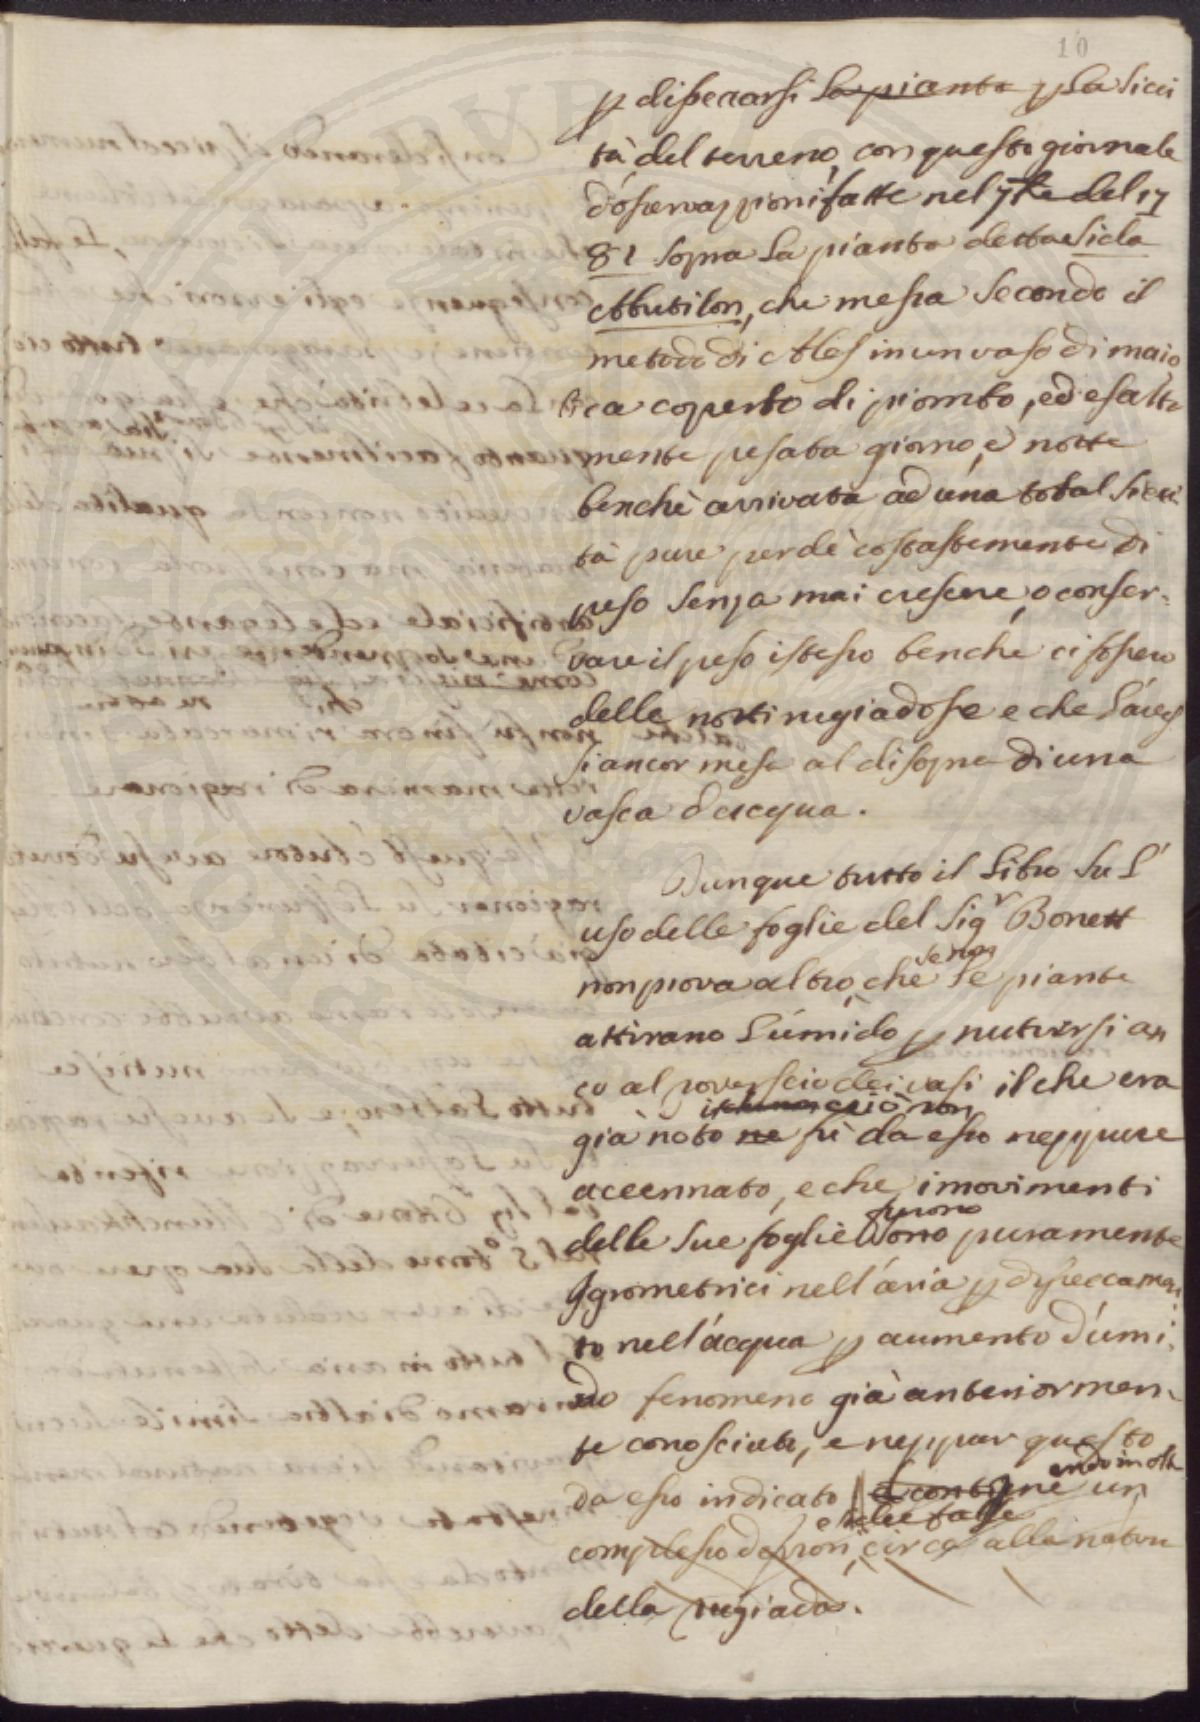 10
p disperarsi la pianta p la sicci
tà del terreno, con questo giornale
d'osservazzioni fatte nel 7bre del 17
81 sopra la pianta detta Sida
Abutilon, che messa secondo il
metodo di Ales in un vaso di maio
lica coperto di piombo, ed esatta
mente pesata giorno, e notte
benchè arrivata ad una total sicci
tà pure perdè costastemente di
peso senza mai crescere, o conser-
vare il peso istesso benche ci fossero
delle notti rugiadose e che l'avessi
si ancor messa al disopra di una
vasca d'acqua.
Dunque tutto il libro su l'
uso delle foglie del Sigr Bonett
non prova altro, che se non le piante
attirano l'umido p nutrirsi an
co al roverscio dei vasi il che era
già noto ne fù da esso neppure
accennato, e che i movimenti
delle sue foglie furono sono puramente
Igrometrici nell'aria p disseccamen
to nell'acqua p aumento d'umi-
do fenomeno già anteriormen-
te conosciuto, e neppur questo
da esso indicato e contiene un
complesso d'errori, circa alla natura
della rugiada.